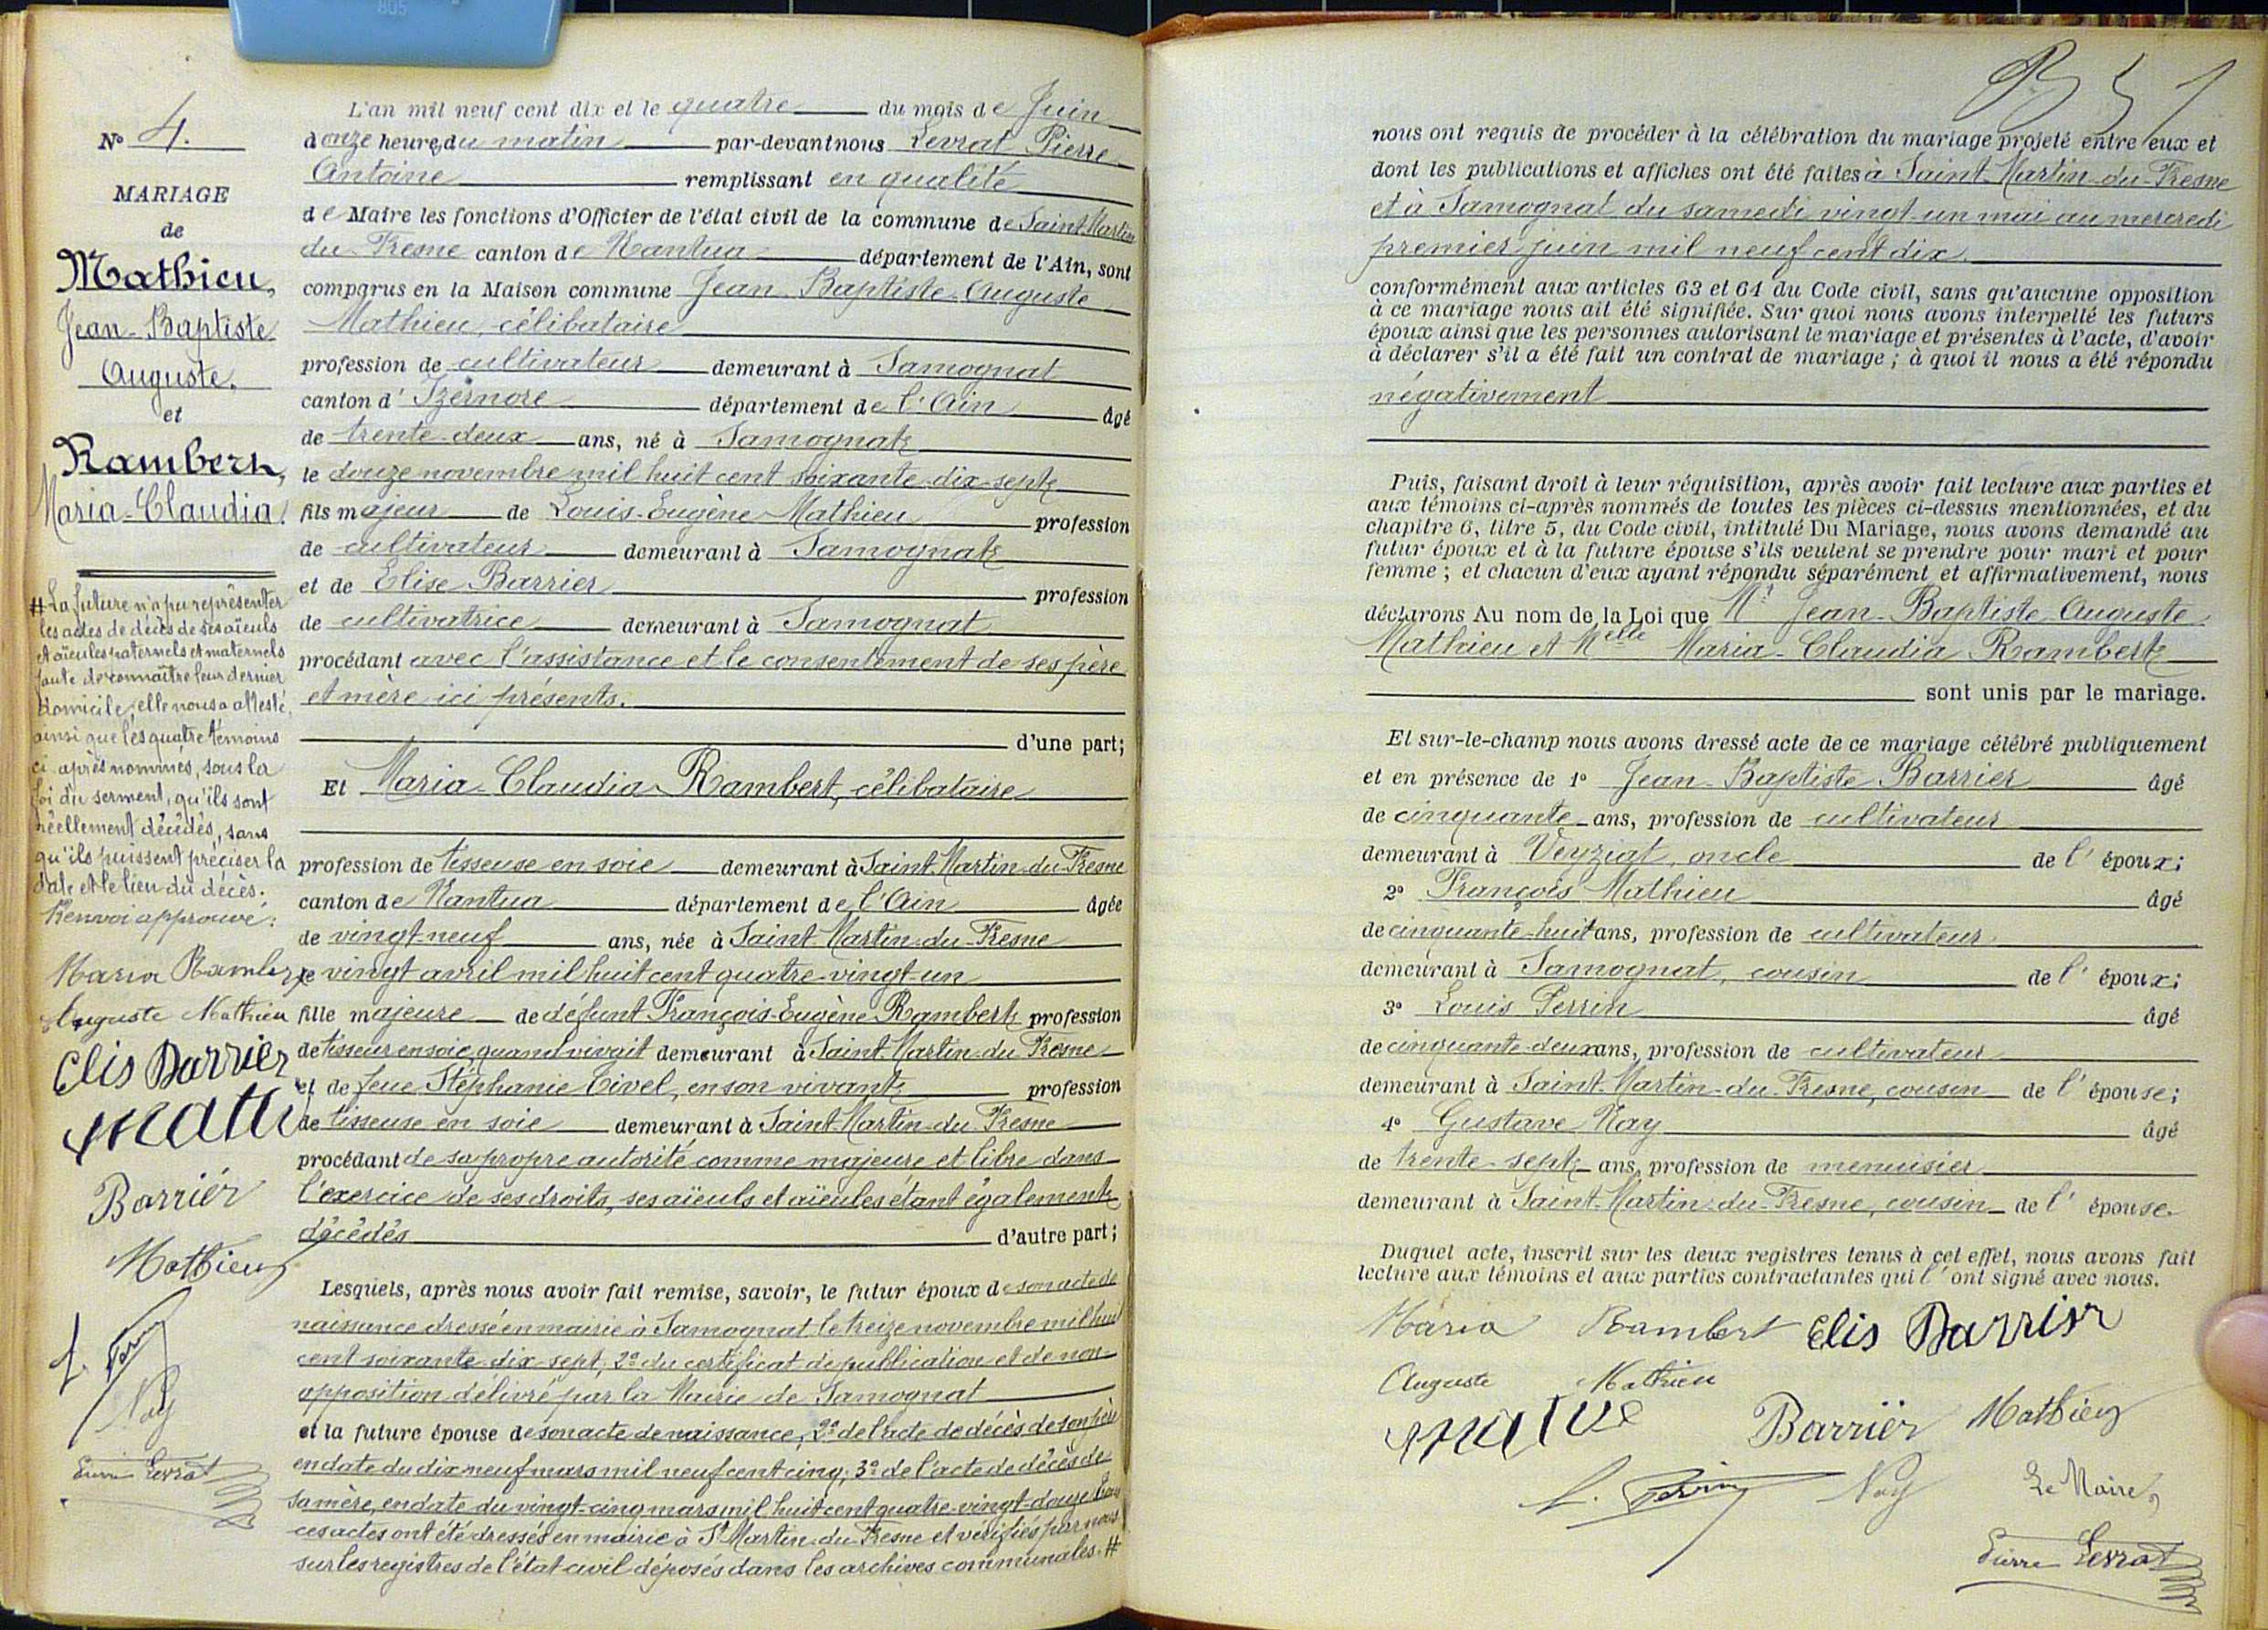 805
N° 4.
MARIAGE
de
Mathieu,
Jean-Baptiste
Auguste.
et
Rambert,
Maria-Claudia.
# La future n'a pu représenter
les actes de décès de ses aïeuls
et aïeules paternels et maternels
faute de connaître leur dernier
domicile, elle nous a attesté,
ainsi que les quatre témoins
ci-après nommés, sous la
foi du serment, qu'ils sont
réellement décédés, sans
qu'ils puissent préciser la
date et le lieu du décès.
Renvoi approuvé:
Maria Rambert
Auguste Mathieu
Elis Barrier
Barriér
Mathieu
Nay
Pierre Levrat
L'an mil neuf cent dix et le quatre du mois de Juin
à onze heures du matin par-devant nous Levrat Pierre
Antoine remplissant en qualité
de Maire les fonctions d'Officier de l'état civil de la commune de Saint-Martin
du-Fresne canton de Nantua département de l'Ain, sont
comparus en la Maison commune Jean-Baptiste-Auguste
Mathieu, célibataire
profession de cultivateur demeurant à Samognat
canton d'Izernore département de l'Ain âgé
de trente-deux ans, né à Samognat
le douze novembre mil huit cent soixante-dix-sept
fils majeur de Louis-Eugène Mathieu profession
de cultivateur demeurant à Samognat
et de Elise Barrier profession
de cultivatrice demeurant à Samognat
procédant avec l'assistance et le consentement de ses père
et mère ici présents.
d'une part;
Et Maria-Claudia Rambert, célibataire
profession de tisseuse en soie demeurant à Saint-Martin-du-Fresne
canton de Nantua département de l'Ain âgée
de vingt-neuf ans, née à Saint-Martin-du-Fresne
le vingt avril mil huit cent quatre-vingt-un
fille majeure de défunt François-Eugène Rambert profession
de tisseur en soie, quand vivait demeurant à Saint-Martin-du-Fresne
et de feue Stéphanie Tivel, en son vivant profession
de tisseuse en soie demeurant à Saint-Martin-du-Fresne
procédant de sa propre autorité comme majeure et libre dans
l'exercice de ses droits, ses aïeuls et aïeules étant également
décédés d'autre part;
Lesquels, après nous avoir fait remise, savoir, le futur époux de son acte de
naissance dressé en mairie à Samognat le treize novembre mil huit
cent soixante-dix-sept; 2° du certificat de publication et de non-
opposition délivré par la Mairie de Samognat
et la future épouse de son acte de naissance, 2° de l'acte de décès de son père
en date du dix-neuf mars mil neuf cent cinq; 3° de l'acte de décès de
sa mère, en date du vingt-cinq mars mil huit cent quatre-vingt-douze tous
ces actes ont été dressés en mairie à St Martin-du-Fresne et vérifiés par nous
sur les registres de l'état-civil déposés dans les archives communales. #
nous ont requis de procéder à la célébration du mariage projeté entre eux et
dont les publications et affiches ont été faites à Saint-Martin-du-Fresne
et à Samognat du samedi vingt-un mai au mercredi
premier juin mil neuf cent dix
conformément aux articles 63 et 64 du Code civil, sans qu'aucune opposition
à ce mariage nous ait été signifiée. Sur quoi nous avons interpellé les futurs
époux ainsi que les personnes autorisant le mariage et présentes à l'acte, d'avoir
à déclarer s'il a été fait un contrat de mariage; à quoi il nous a été répondu
négativement
Puis, faisant droit à leur réquisition, après avoir fait lecture aux parties et
aux témoins ci-après nommés de toutes les pièces ci-dessus mentionnées, et du
chapitre 6, titre 5, du Code civil, intitulé Du Mariage, nous avons demandé au
futur époux et à la future épouse s'ils veulent se prendre pour mari et pour
femme; et chacun d'eux ayant répondu séparément et affirmativement, nous
déclarons Au nom de la Loi que Mr Jean-Baptiste-Auguste
Mathieu et Melle Maria-Claudia Rambert
sont unis par le mariage.
Et sur-le-champ nous avons dressé acte de ce mariage célébré publiquement
et en présence de 1° Jean-Baptiste Barrier âgé
de cinquante ans, profession de cultivateur
demeurant à Veyziat, oncle de l'époux;
2° François Mathieu âgé
de cinquante-huit ans, profession de cultivateur
demeurant à Samognat, cousin de l'époux;
3° Louis Perrin âgé
de cinquante-deux ans, profession de cultivateur
demeurant à Saint-Martin-du-Fresne, cousin de l'épouse;
4° Gustave Nay âgé
de trente-sept ans, profession de menuisier
demeurant à Saint-Martin-du-Fresne, cousin de l'épouse.
Duquel acte, inscrit sur les deux registres tenus à cet effet, nous avons fait
lecture aux témoins et aux parties contractantes qui l'ont signé avec nous.
Maria Rambert Elis Barrier
Auguste Mathieu
Barriér Mathieu
L. Perrin Nay Le Maire,
Pierre Levrat